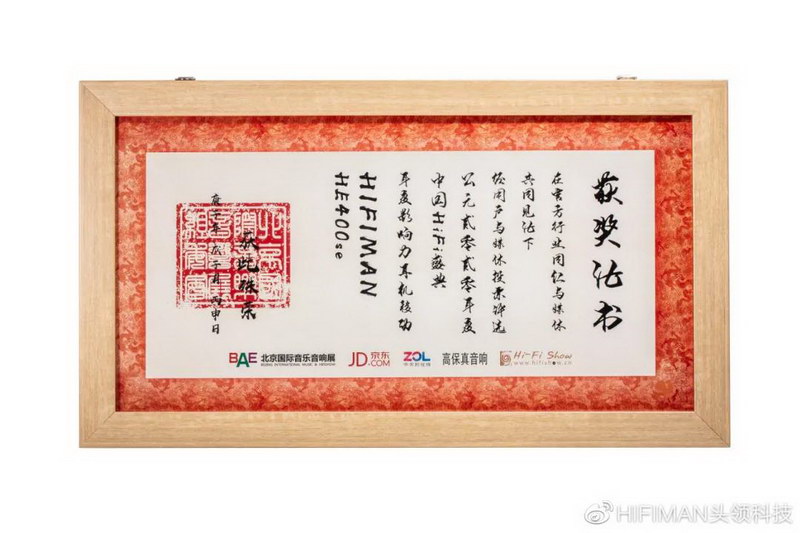 获奖证书
在官方行业同仁与媒体
共同见证下
经用户与媒体投票评选
公元贰零贰零年度
中国HiFi盛典
年度影响力耳机被功
HIFIMAN
HE400se
获此殊荣
庚子年 戊子月 丙申日
BAE 北京国际音乐音响展
BEIJING INTERNATIONAL MUSIC & HIFISHOW
JD.COM 京东
ZOL 中关村在线
高保真音响
Hi-Fi Show
www.hifishow.cn
@HIFIMAN头领科技